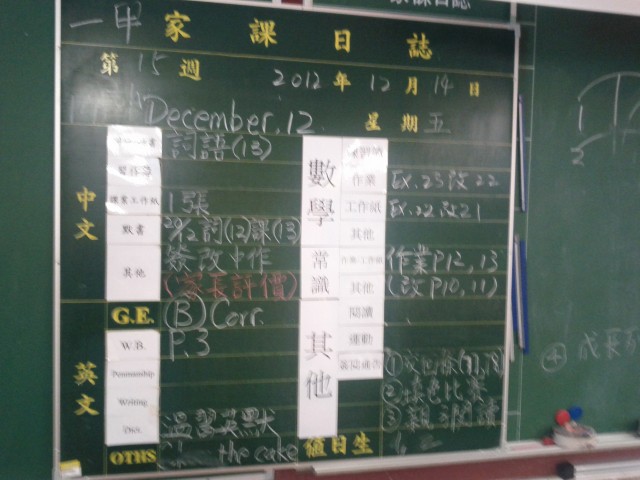 一甲 家課日誌
第 15 週 2012 年 12 月 14 日
December, 12 星期五
中文
詞語(13)
課業工作紙 1張
默書 詞(12)課(13)
其他 簽改中作
(家長評價)
英文
G.E. (B) Corr.
W.B. P.3
Penmanship
Writing
Dict. 溫習英默
OTHS the cake
數學
作業 EX.23改22
工作紙 EX.22改21
其他
常識
作業工作紙 作業P12, 13
其他 (改P10, 11)
其他
閱讀
運動
①
②填色比賽
③親子閱讀
值日生 1, 2
1
2
④ 成